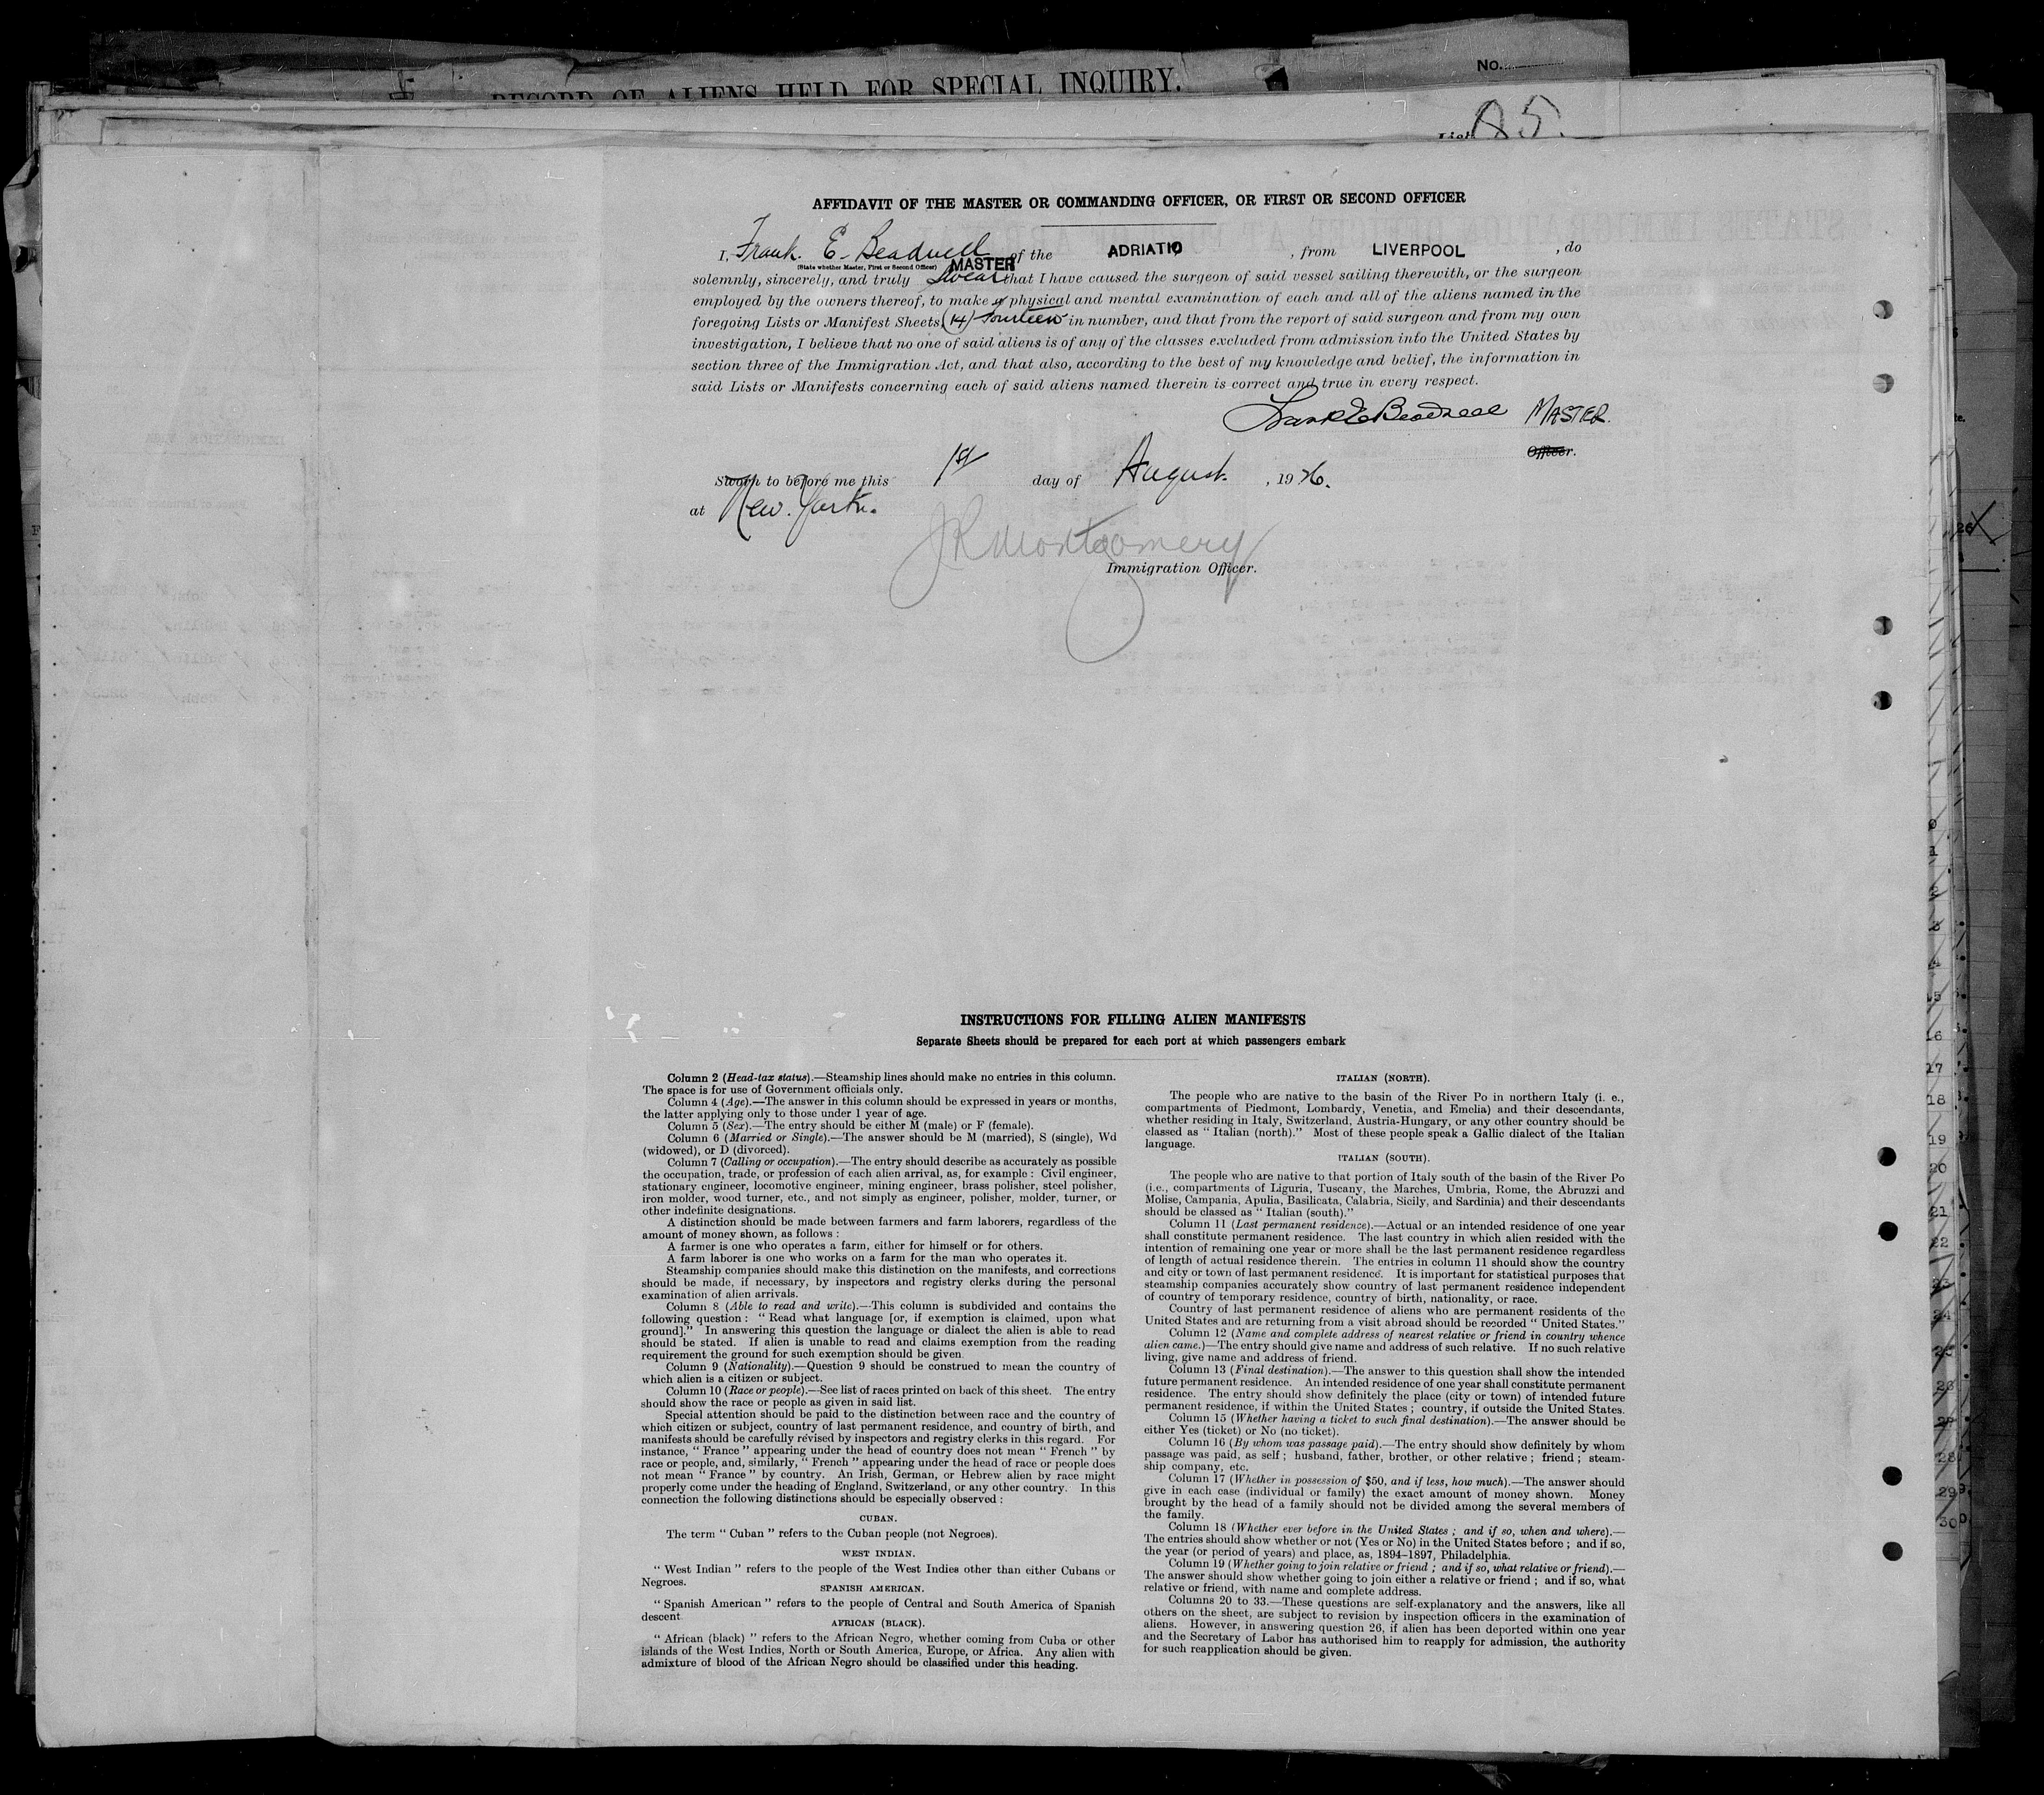 No.
RECORD OF ALIENS HELD FOR SPECIAL INQUIRY.
List
AFFIDAVIT OF THE MASTER OR COMMANDING OFFICER, OR FIRST OR SECOND OFFICER
I, Frank. E. Beadnell of the ADRIATIC, from LIVERPOOL, do
(State whether Master, First or Second Officer) MASTER
solemnly, sincerely, and truly Swear that I have caused the surgeon of said vessel sailing therewith, or the surgeon
employed by the owners thereof, to make a physical and mental examination of each and all of the aliens named in the
foregoing Lists or Manifest Sheets, (14) fourteen in number, and that from the report of said surgeon and from my own
investigation, I believe that no one of said aliens is of any of the classes excluded from admission into the United States by
section three of the Immigration Act, and that also, according to the best of my knowledge and belief, the information in
said Lists or Manifests concerning each of said aliens named therein is correct and true in every respect.
Frank E Beadnell MASTER.
Officer.
Sworn to before me this 1st day of August, 1926.
at New. York.
JR Montgomery
Immigration Officer.
INSTRUCTIONS FOR FILLING ALIEN MANIFESTS
Separate Sheets should be prepared for each port at which passengers embark
Column 2 (Head-tax status).—Steamship lines should make no entries in this column.
The space is for use of Government officials only.
Column 4 (Age).—The answer in this column should be expressed in years or months,
the latter applying only to those under 1 year of age.
Column 5 (Sex).—The entry should be either M (male) or F (female).
Column 6 (Married or Single).—The answer should be M (married), S (single), Wd
(widowed), or D (divorced).
Column 7 (Calling or occupation).—The entry should describe as accurately as possible
the occupation, trade, or profession of each alien arrival, as, for example : Civil engineer,
stationary engineer, locomotive engineer, mining engineer, brass polisher, steel polisher,
iron molder, wood turner, etc., and not simply as engineer, polisher, molder, turner, or
other indefinite designations.
A distinction should be made between farmers and farm laborers, regardless of the
amount of money shown, as follows :
A farmer is one who operates a farm, either for himself or for others.
A farm laborer is one who works on a farm for the man who operates it.
Steamship companies should make this distinction on the manifests, and corrections
should be made, if necessary, by inspectors and registry clerks during the personal
examination of alien arrivals.
Column 8 (Able to read and write).—This column is subdivided and contains the
following question : " Read what language [or, if exemption is claimed, upon what
ground]." In answering this question the language or dialect the alien is able to read
should be stated. If alien is unable to read and claims exemption from the reading
requirement the ground for such exemption should be given.
Column 9 (Nationality).—Question 9 should be construed to mean the country of
which alien is a citizen or subject.
Column 10 (Race or people).—See list of races printed on back of this sheet. The entry
should show the race or people as given in said list.
Special attention should be paid to the distinction between race and the country of
which citizen or subject, country of last permanent residence, and country of birth, and
manifests should be carefully revised by inspectors and registry clerks in this regard. For
instance, " France " appearing under the head of country does not mean " French " by
race or people, and, similarly, " French " appearing under the head of race or people does
not mean " France " by country. An Irish, German, or Hebrew alien by race might
properly come under the heading of England, Switzerland, or any other country. In this
connection the following distinctions should be especially observed :
CUBAN.
The term " Cuban " refers to the Cuban people (not Negroes).
WEST INDIAN.
" West Indian " refers to the people of the West Indies other than either Cubans or
Negroes.
SPANISH AMERICAN.
" Spanish American " refers to the people of Central and South America of Spanish
descent
AFRICAN (BLACK).
" African (black) " refers to the African Negro, whether coming from Cuba or other
islands of the West Indies, North or South America, Europe, or Africa. Any alien with
admixture of blood of the African Negro should be classified under this heading.
ITALIAN (NORTH).
The people who are native to the basin of the River Po in northern Italy (i. e.,
compartments of Piedmont, Lombardy, Venetia, and Emelia) and their descendants,
whether residing in Italy, Switzerland, Austria-Hungary, or any other country should be
classed as " Italian (north)." Most of these people speak a Gallic dialect of the Italian
language.
ITALIAN (SOUTH).
The people who are native to that portion of Italy south of the basin of the River Po
(i.e., compartments of Liguria, Tuscany, the Marches, Umbria, Rome, the Abruzzi and
Molise, Campania, Apulia, Basilicata, Calabria, Sicily, and Sardinia) and their descendants
should be classed as " Italian (south)."
Column 11 (Last permanent residence).—Actual or an intended residence of one year
shall constitute permanent residence. The last country in which alien resided with the
intention of remaining one year or more shall be the last permanent residence regardless
of length of actual residence therein. The entries in column 11 should show the country
and city or town of last permanent residence. It is important for statistical purposes that
steamship companies accurately show country of last permanent residence independent
of country of temporary residence, country of birth, nationality, or race.
Country of last permanent residence of aliens who are permanent residents of the
United States and are returning from a visit abroad should be recorded " United States."
Column 12 (Name and complete address of nearest relative or friend in country whence
alien came.)—The entry should give name and address of such relative. If no such relative
living, give name and address of friend.
Column 13 (Final destination).—The answer to this question shall show the intended
future permanent residence. An intended residence of one year shall constitute permanent
residence. The entry should show definitely the place (city or town) of intended future
permanent residence, if within the United States ; country, if outside the United States.
Column 15 (Whether having a ticket to such final destination).—The answer should be
either Yes (ticket) or No (no ticket).
Column 16 (By whom was passage paid).—The entry should show definitely by whom
passage was paid, as self ; husband, father, brother, or other relative ; friend ; steam-
ship company, etc.
Column 17 (Whether in possession of $50, and if less, how much).—The answer should
give in each case (individual or family) the exact amount of money shown. Money
brought by the head of a family should not be divided among the several members of
the family.
Column 18 (Whether ever before in the United States ; and if so, when and where).—
The entries should show whether or not (Yes or No) in the United States before ; and if so,
the year (or period of years) and place, as, 1894–1897, Philadelphia.
Column 19 (Whether going to join relative or friend ; and if so, what relative or friend).—
The answer should show whether going to join either a relative or friend ; and if so, what
relative or friend, with name and complete address.
Columns 20 to 33.—These questions are self-explanatory and the answers, like all
others on the sheet, are subject to revision by inspection officers in the examination of
aliens. However, in answering question 26, if alien has been deported within one year
and the Secretary of Labor has authorised him to reapply for admission, the authority
for such reapplication should be given.
16
17
18
19
20
21
22
28
29
30